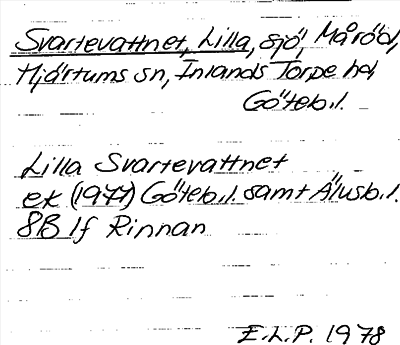 Svartevattnet, Lilla, sjö, Måröd,
Hjärtums sn, Inlands Torpe hd
Göteb.l.
Lilla Svartevattnet
ek (1977) Göteb.l. samt Älvsb.l.
8B 1f Rinnan
E.L.P. 1978